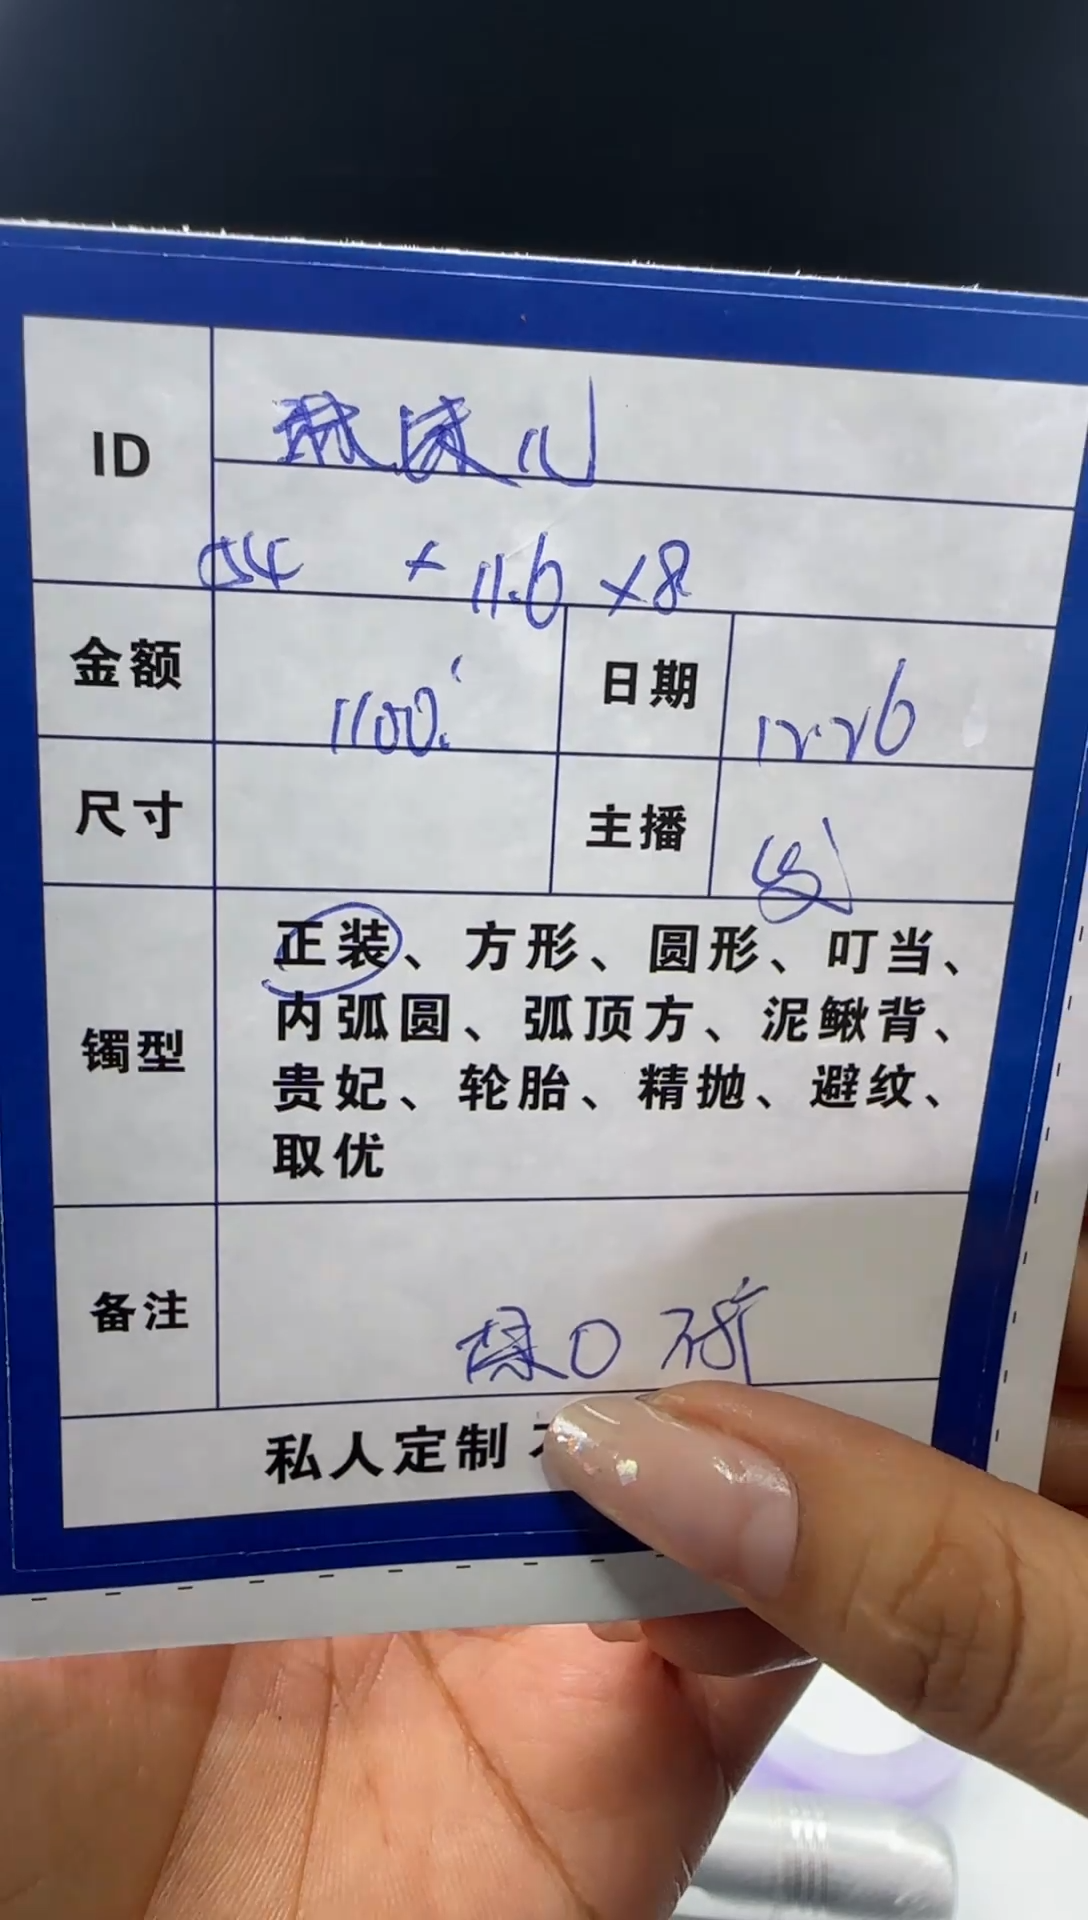 ID
54 × 11.6 × 8
金额 1100. 日期 12.26
尺寸 主播
正装、方形、圆形、叮当、
内弧圆、弧顶方、泥鳅背、
镯型
贵妃、轮胎、精抛、避纹、
取优
备注
私人定制